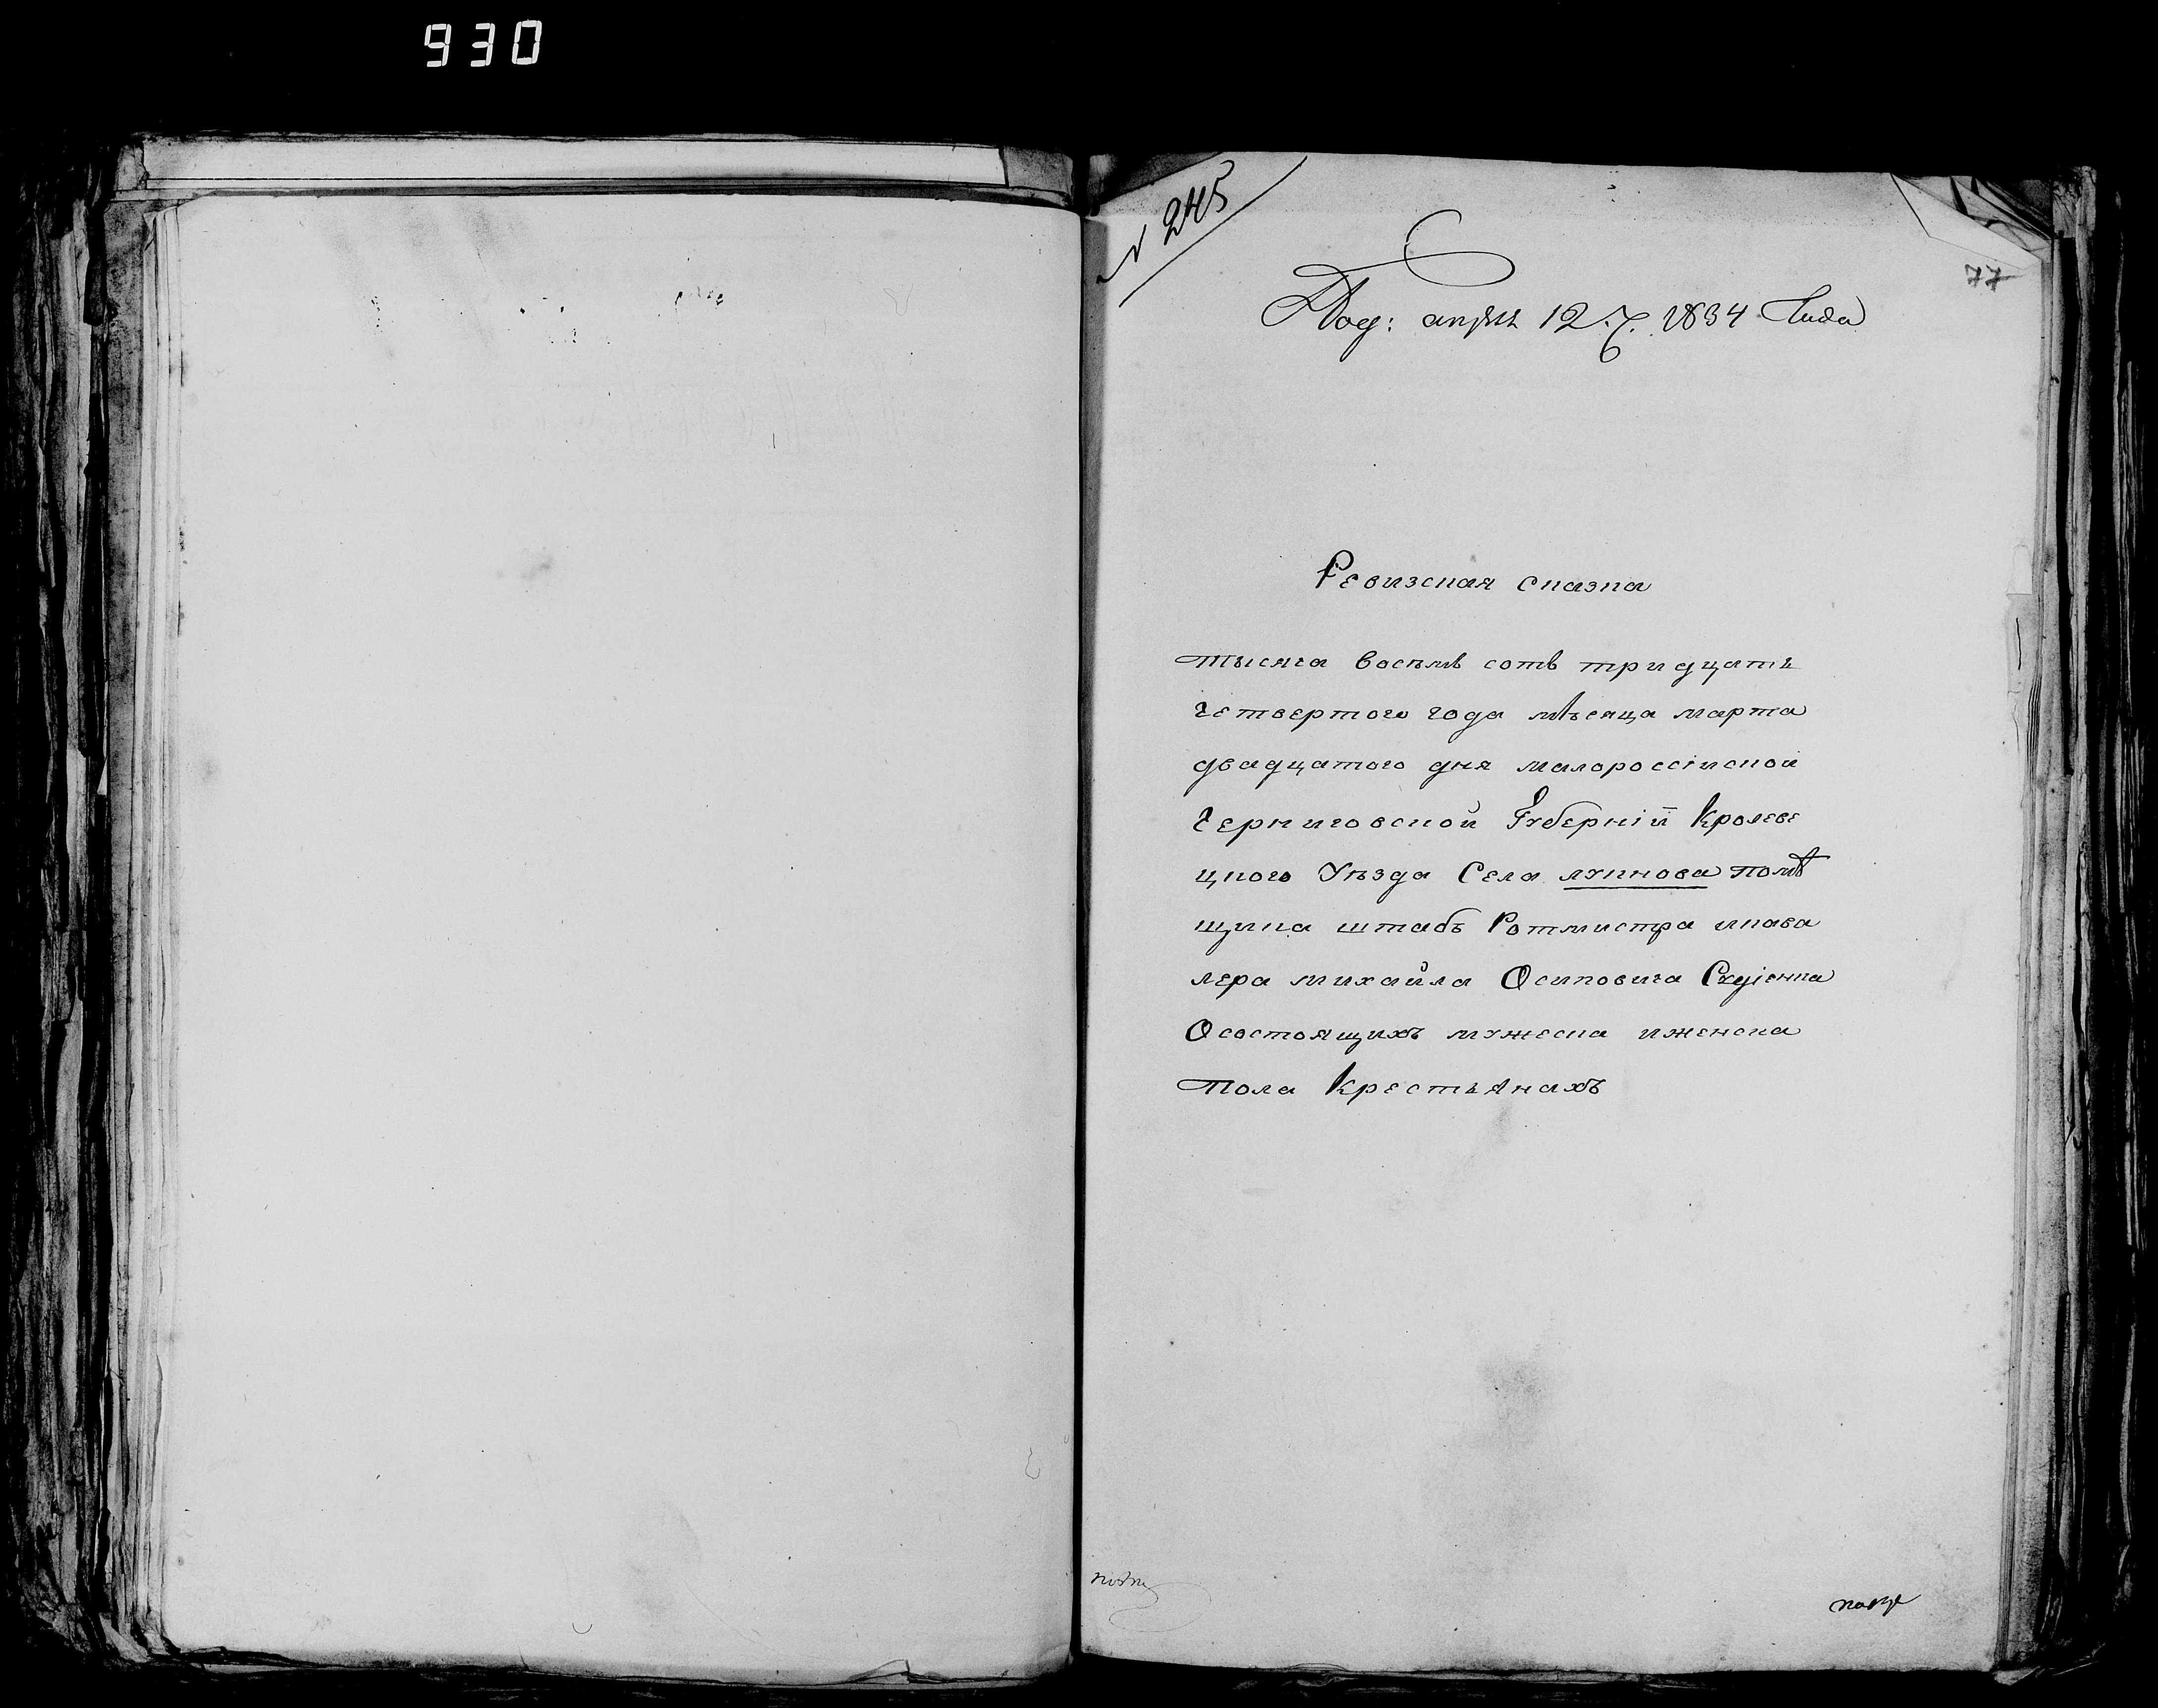 930
№ 245
77
Под: апреля 12. ч. 1834 Года
Ревизская сказка
тысяча восѣмъ сотъ тридцать
Четвертого года мѣсяца марта
двадцатого дня малороссійской
Черниговской Губерніи Кролеве
цкого Уѣзда Села лукнова помѣ
щика штабъ Ротмистра икава
лера михайла Осиповича Судіенка
О состоящихъ мужеска иженска
пола Крестьянахъ